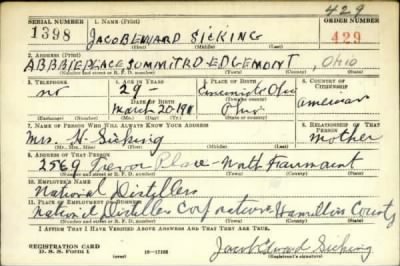 429
SERIAL NUMBER 1. NAME (Print) ORDER NUMBER
1398 JACOB EDWARD SICKING 429
(First) (Middle) (Last)
2. ADDRESS (Print)
SUMMIT RD EDGEMONT, Ohio
(Number and street or R. F. D. number) (Town) (County) (State)
3. TELEPHONE 4. AGE IN YEARS 5. PLACE OF BIRTH 6. COUNTRY OF CITIZENSHIP
no 29- Cincinnati Ohio
DATE OF BIRTH (Town or county)
March 20-1911 Ohio American
(Exchange) (No.) (Mo.) (Day) (Yr.) (State or country)
7. NAME OF PERSON WHO WILL ALWAYS KNOW YOUR ADDRESS 8. RELATIONSHIP OF THAT PERSON
Mrs. H- Sicking mother
(Mr., Mrs., Miss) (First) (Middle) (Last)
9. ADDRESS OF THAT PERSON
2569 Trevor Place - North Fairmount
(Number and street or R. F. D. number) (Town) (County) (State)
10. EMPLOYER'S NAME
National Distillers
11. PLACE OF EMPLOYMENT OR BUSINESS
National Distillers Hamilton County
(Number and street or R. F. D. number) (Town) (County) (State)
I AFFIRM THAT I HAVE VERIFIED ABOVE ANSWERS AND THAT THEY ARE TRUE.
REGISTRATION CARD
D. S. S. Form 1 16-17105 Jacob Edward Sicking
(Registrant's signature)